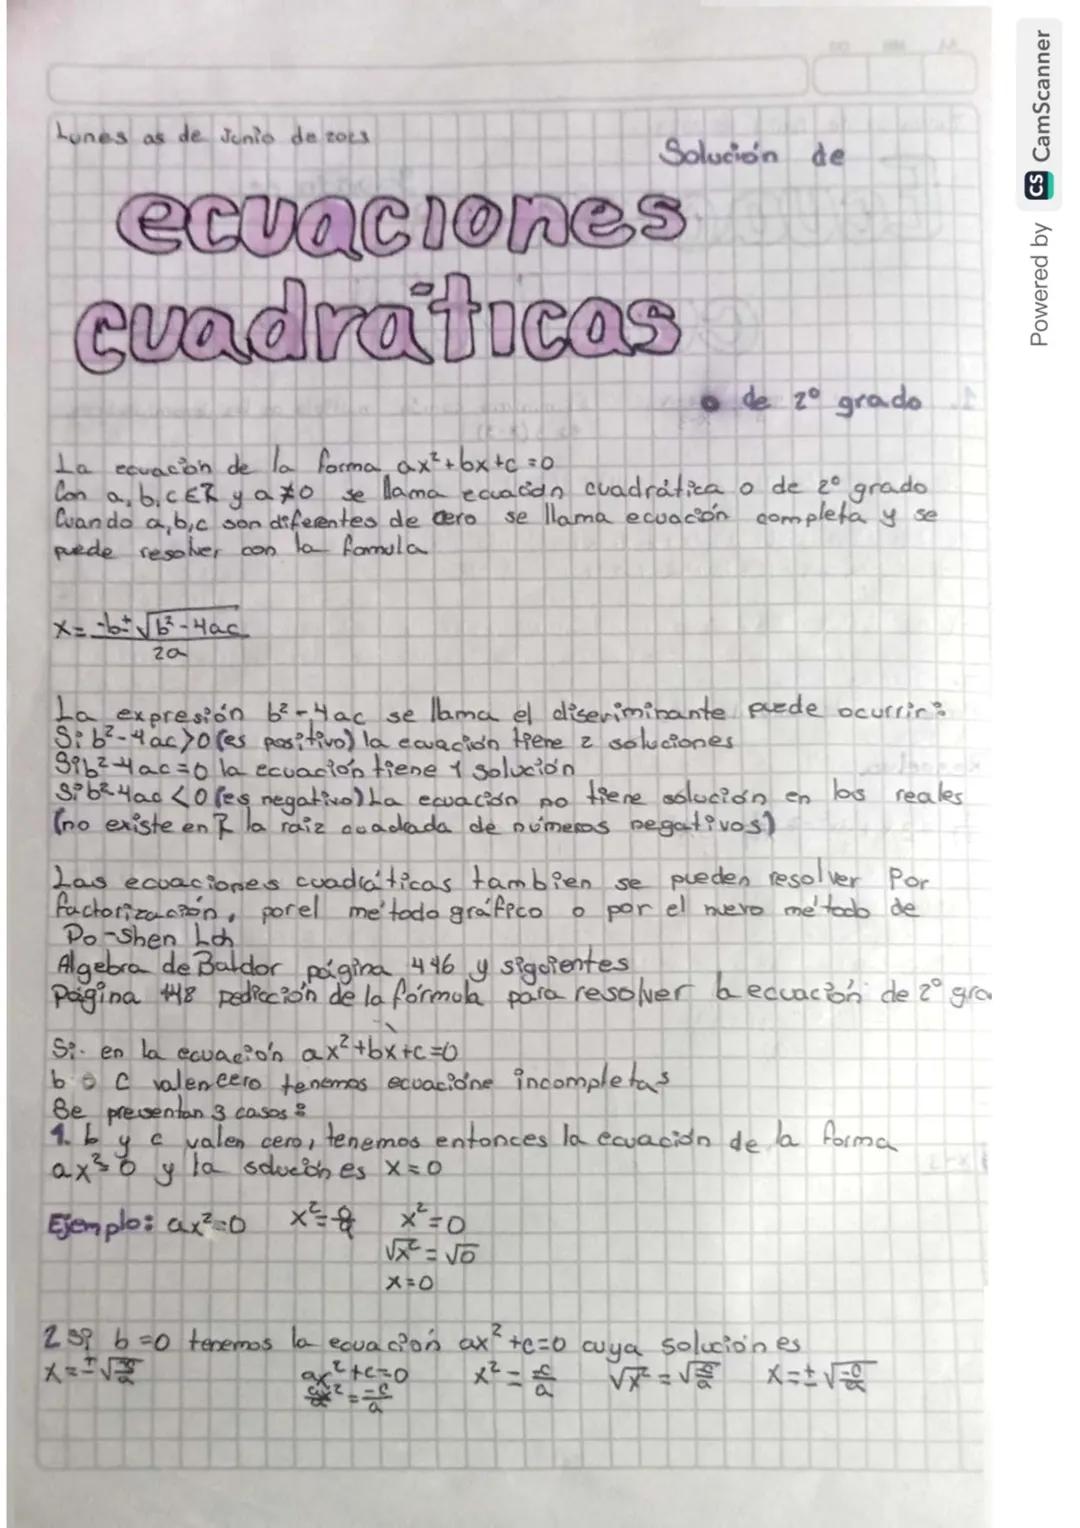 Lunes 05 de Junio de 2023
Solución de
ecuaciones
cuadráticas
o de 2º grado
La ecuación de la forma ax²+bx+c=0
Con a,b,c ∈ R y a≠0 se llama ecuación cuadrática o de 2º grado
Cuando a,b,c son diferentes de cero se llama ecuación completa y se
puede resolver con la formula
x= -b±√b²-4ac
2a
La expresión b²-4ac se llama el discriminante puede ocurrir:
Si b²-4ac>0 (es positivo) la ecuación tiene 2 soluciones
Si b²-4ac=0 la ecuación tiene 1 solución
Si b²-4ac <0 (es negativo) La ecuación no tiene solución en los reales
(no existe en R la raiz cuadrada de números negativos)
Las ecuaciones cuadráticas tambien se pueden resolver Por
factorización, por el método gráfico o por el nuevo método de
Po-Shen Loh
Algebra de Baldor página 446 y siguientes
Página 448 de la fórmula para resolver la ecuación de 2º gra
Si en la ecuación ax²+bx+c=0
b o c valen cero tenemos ecuacione incompletas
Se presentan 3 casos:
1. b y c valen cero, tenemos entonces la ecuación de la forma
ax²=0 y la solución es x=0
Ejemplo: ax²=0 x²=0/a x²=0
√x² = √0
x=0
2 si b=0 tenemos la ecuación ax²+c=0 cuya solución es
x=±√-c/a ax²+c=0 x²=-c/a √x²=√-c/a x=±√-c/a
ax²=-c/a
Powered by CS CamScanner